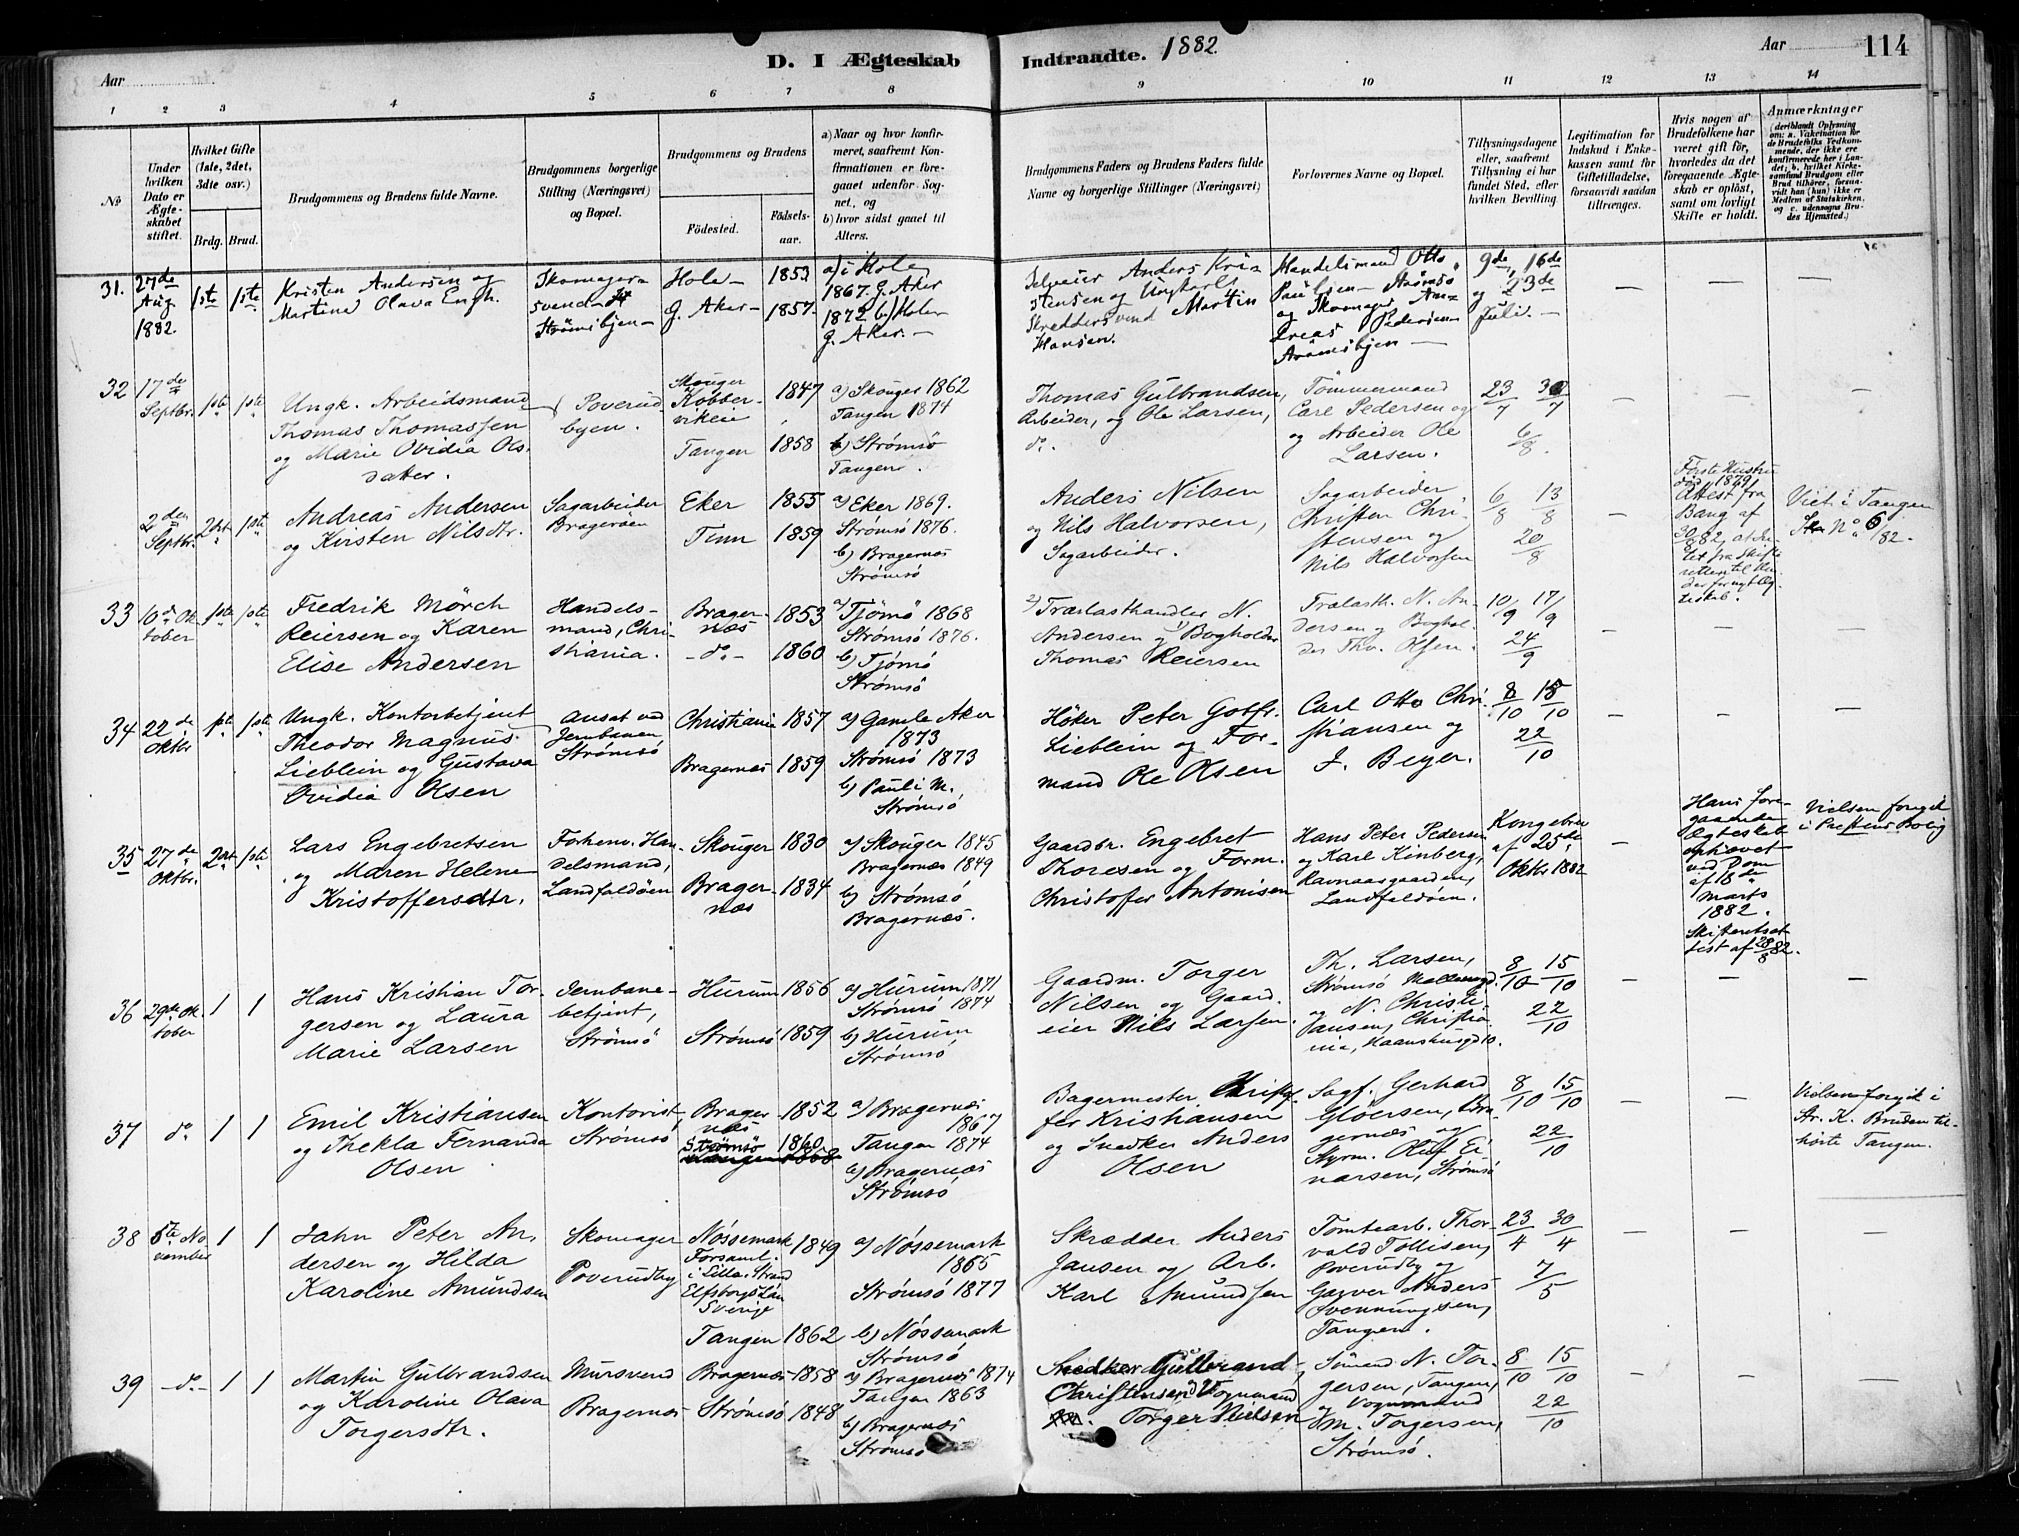 D. I Ægteskab Indtraadte. 1882.
Aar
Aar
114
1 2 3 4 5 6 7 8 9 10 11 12 13 14
No
Under hvilken Dato er Ægteskabet stiftet.
Hvilket Gifte (1ste, 2det, 3die osv.)
Brdg. Brud.
Brudgommens og Brudens fulde Navne.
Brudgommens borgerlige Stilling (Næringsvei) og Bopæl.
Brudgommens og Brudens
Fødested.
Fødselsaar.
a) Naar og hvor konfirmeret, saafremt Konfirmationen er foregaaet udenfor Sognet, og
b) hvor sidst gaaet til Alters.
Brudgommens Faders og Brudens Faders fulde Navne og borgerlige Stillinger (Næringsvei)
Forlovernes Navne og Bopæl.
Tillysningsdagene eller, saafremt Tillysning ei har fundet Sted, efter hvilken Bevilling.
Legitimation for Indskud i Enkekassen samt for Giftetilladelse, forsaavidt saadan tiltrænges.
Hvis nogen af Brudefolkene har været gift, hvorledes da det foregaaende Ægteskab er opløst, samt om lovligt Skifte er holdt.
Anmærkninger
31. 27de Aug. 1882. 1ste 1ste
Kristen Andersen og
Martina Olava Engh.
Skomagersvend
Strømsbyen
Hole 1853
G. Aker 1857
a) i Hole
1867. G. Aker
1872 b) Hole
G. Aker.
Selveier Anders Kristensen og Ungkarl
Skreddersvend Martin
Hansen.
Handelsmand Otto
Paulsen Strømsø
og Skomager Andreas Pedersen
Strømsbyen
9de, 16de
og 23de
Juli.
32 17de Septbr. 1ste 1ste
Ungk. Arbeidsmand
Thomas Thomassen
og Marie Ovidia Olsdatter.
Poverudbyen.
Skouger
Kobbervikeie 1847
Tangen 1858
a) Skouger 1862
Tangen 1874
b) Strømsö
Tangen.
Thomas Gulbrandsen,
Arbeider, og Ole Larsen,
do.
Tømmermand
Carl Pedersen og
og Arbeider Ole
Larsen.
23/7 30/7
6/8.
2den Septbr. 2det 1ste
Andreas Andersen
og Kirsten Nilsdtr.
Sagarbeider
Bragerøen
Eker 1855
Tinn 1859
a) Eker 1869.
Strømsö 1876.
b) Bragernæs
Strømsö
Anders Nilsen
og Nils Halvorsen,
Sagarbeider.
Sagarbeider
Christen Christensen og
Nils Halvorsen
6/8 13/8
20/8
Første Hustru
død 1879
Attest fra
Bang af
30/8 82
Viet i Tangen
No 6/82.
33 10de Oktober 1ste 1ste
Fredrik Mörch
Reiersen og Karen
Elise Andersen
Handelsmand, Christiania.
Bragernæs 1853
do. 1860
a) Tjömö 1868
Strømsö 1876.
b) Tjömö
Strømsö
Trælasthandler N.
Andersen og Bogholder
Thomas Reiersen
Trælasth. N. Andersen og Bogholder Thv. Olsen.
10/9 17/9
24/9
34 22de Oktbr 1ste 1ste
Ungk. Kontorbetjent
Theodor Magnus
Lieblein og Gustava
Ovidia Olsen
Ansat ved
Jernbanen
Strømsö
Christiania 1857
Bragernæs 1859
a) Gamle Aker
1873
Strømsö 1873
b) Pauli M.
Strømsö
Høker Peter Gotfr.
Lieblein og Formand Ole Olsen
Carl Otto Christiansen og
J. Beyer.
8/10 15/10
22/10
35 27de Oktbr. 2det 1ste
Lars Engebretsen
og Maren Helene
Kristoffersdtr.
Forhenv. Handelsmand,
Landfaldöen
Skouger 1830
Bragernæs 1834
a) Skouger 1845
Bragernæs 1849
b) Strømsö
Bragernæs.
Gaardbr. Engebret
Thoresen og Form.
Christoffer Antonisen
Hans Peter Pedersen
og Karl Kinberg,
Ravnaasgaarden,
Landfaldöen.
Kongebrev
af 25de
Oktbr 1882
Hans foregaaende
Ægteskab
ophævet
ved Dom
af 18de
Marts
1882.
Skifteretsattest af 28/8 82.
Vielsen foregik
i Prestens Bolig
36 29de Oktober 1 1
Hans Kristian Torgersen og Laura
Marie Larsen
Jernbanebetjent,
Strømsö
Hurum 1856
Strømsö 1859
a) Hurum 1871
Strømsö 1874
b) Hurum
Strømsö
Gaardm. Torger
Nilsen og Gaardeier Nils Larsen.
Th. Larsen,
Strømsö
og N. Christiansen, Christiania,
8/10 15/10
22/10
37 do 1 1
Emil Kristiansen
og Thekla Fernanda
Olsen
Kontorist,
Strømsö
Bragernæs 1852
Strømsö 1860
a) Bragernæs
1867
Tangen 1874
b) Bragernæs
Strømsö
Bagermester Christoffer Kristiansen
og Snedker Anders
Olsen
Sagf. Gerhard
Gløersen, Bragernæs og
Styrm. Oluf Einarsen, Strømsö
8/10 15/10
22/10
Vielsen foregik i
Str. K. Bruden tilhörte Tangen.
38 5te November 1 1
Jahn Peter Andersen og Hilda
Karoline Amundsen
Skomager
Poverudby
Nössemark 1849
Forsaml.
i Lilla Strand
Elfsborgs Län
Sverige
Tangen 1862
a) Nössemark
1865
Strømsö 1877
b) Nössemark
Strømsö
Skrædder Anders
Jansen og Arb.
Karl Amundsen
Tomtearb. Thorvald Tollisen,
Poverudby og
Garver Anders
Svenningsen,
Tangen.
23/4 30/4
7/5
39 do. 1 1
Martin Gulbrandsen
og Karoline Olava
Torgersdtr.
Mursvend
Bragernæs
Bragernæs 1858
Strømsö 1848
a) Bragernæs 1874
Tangen 1863
b) Bragernæs
Strømsö
Snedker Gulbrand
Christensen og Vognmand
Torger Nielsen
Sömand N. Torgersen, Tangen,
og Vognmand
M. Torgersen,
Strømsö.
8/10 15/10
22/10